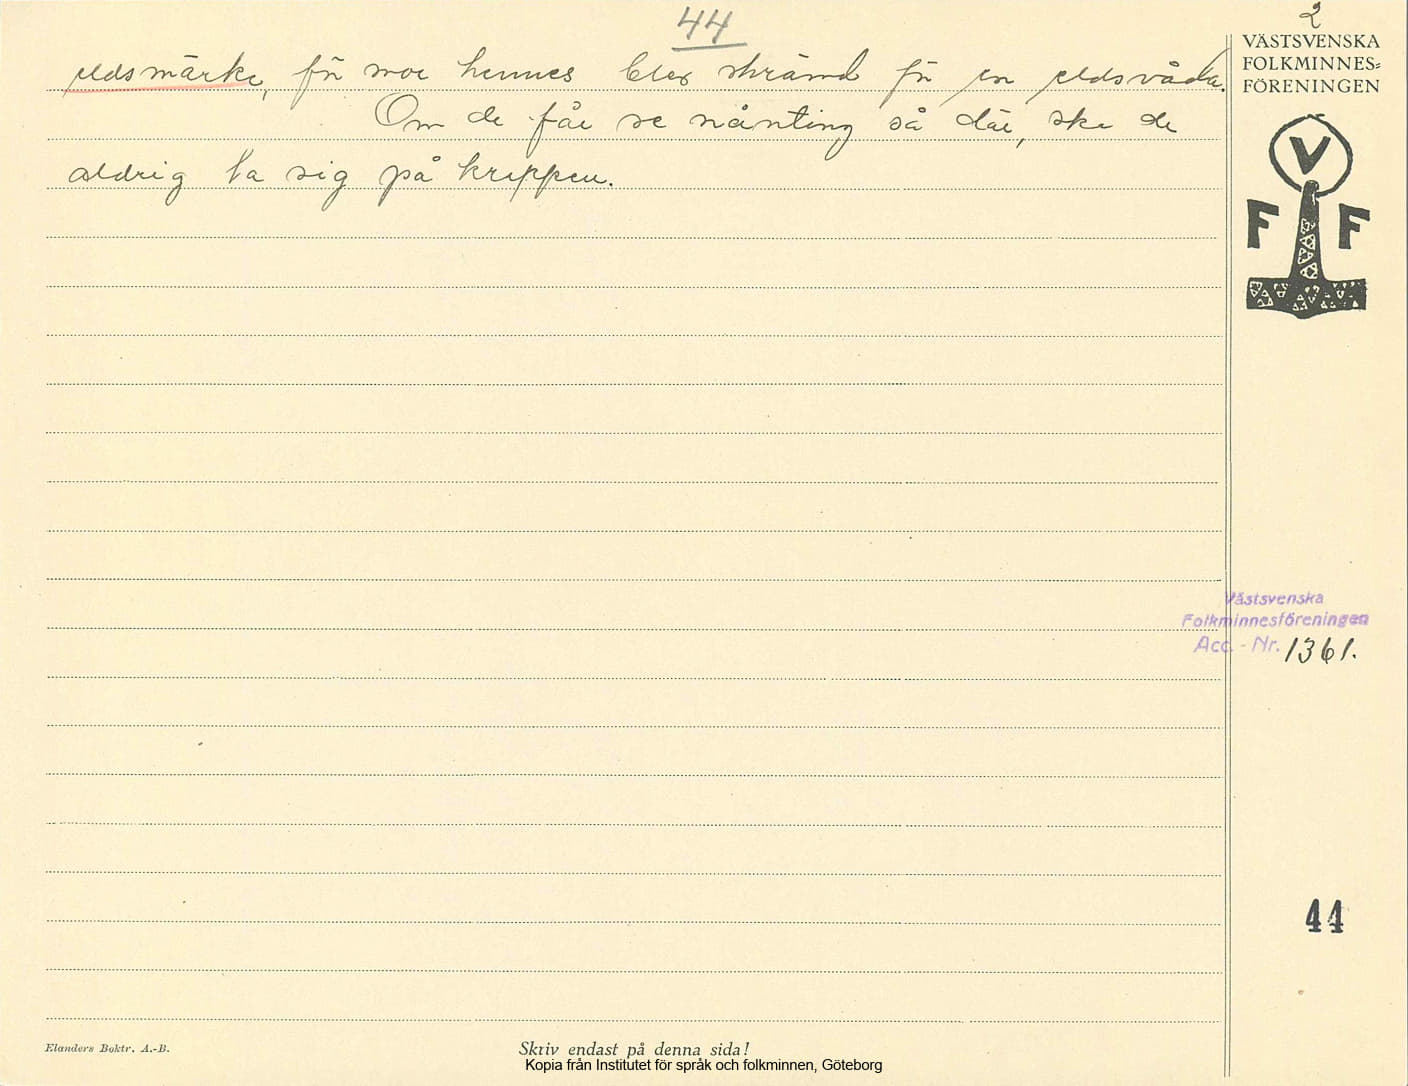 44
2
VÄSTSVENSKA
FOLKMINNES=
FÖRENINGEN
eldsmärke, för mor hennes blev skrämd för en eldsvåda.
Om de får se nånting så där, ska de
aldrig ta sig på kroppen.
V
F F
Västsvenska
Folkminnesföreningen
Acc. - Nr. 1361.
44
Elanders Boktr. A.-B.
Skriv endast på denna sida!
Kopia från Institutet för språk och folkminnen, Göteborg